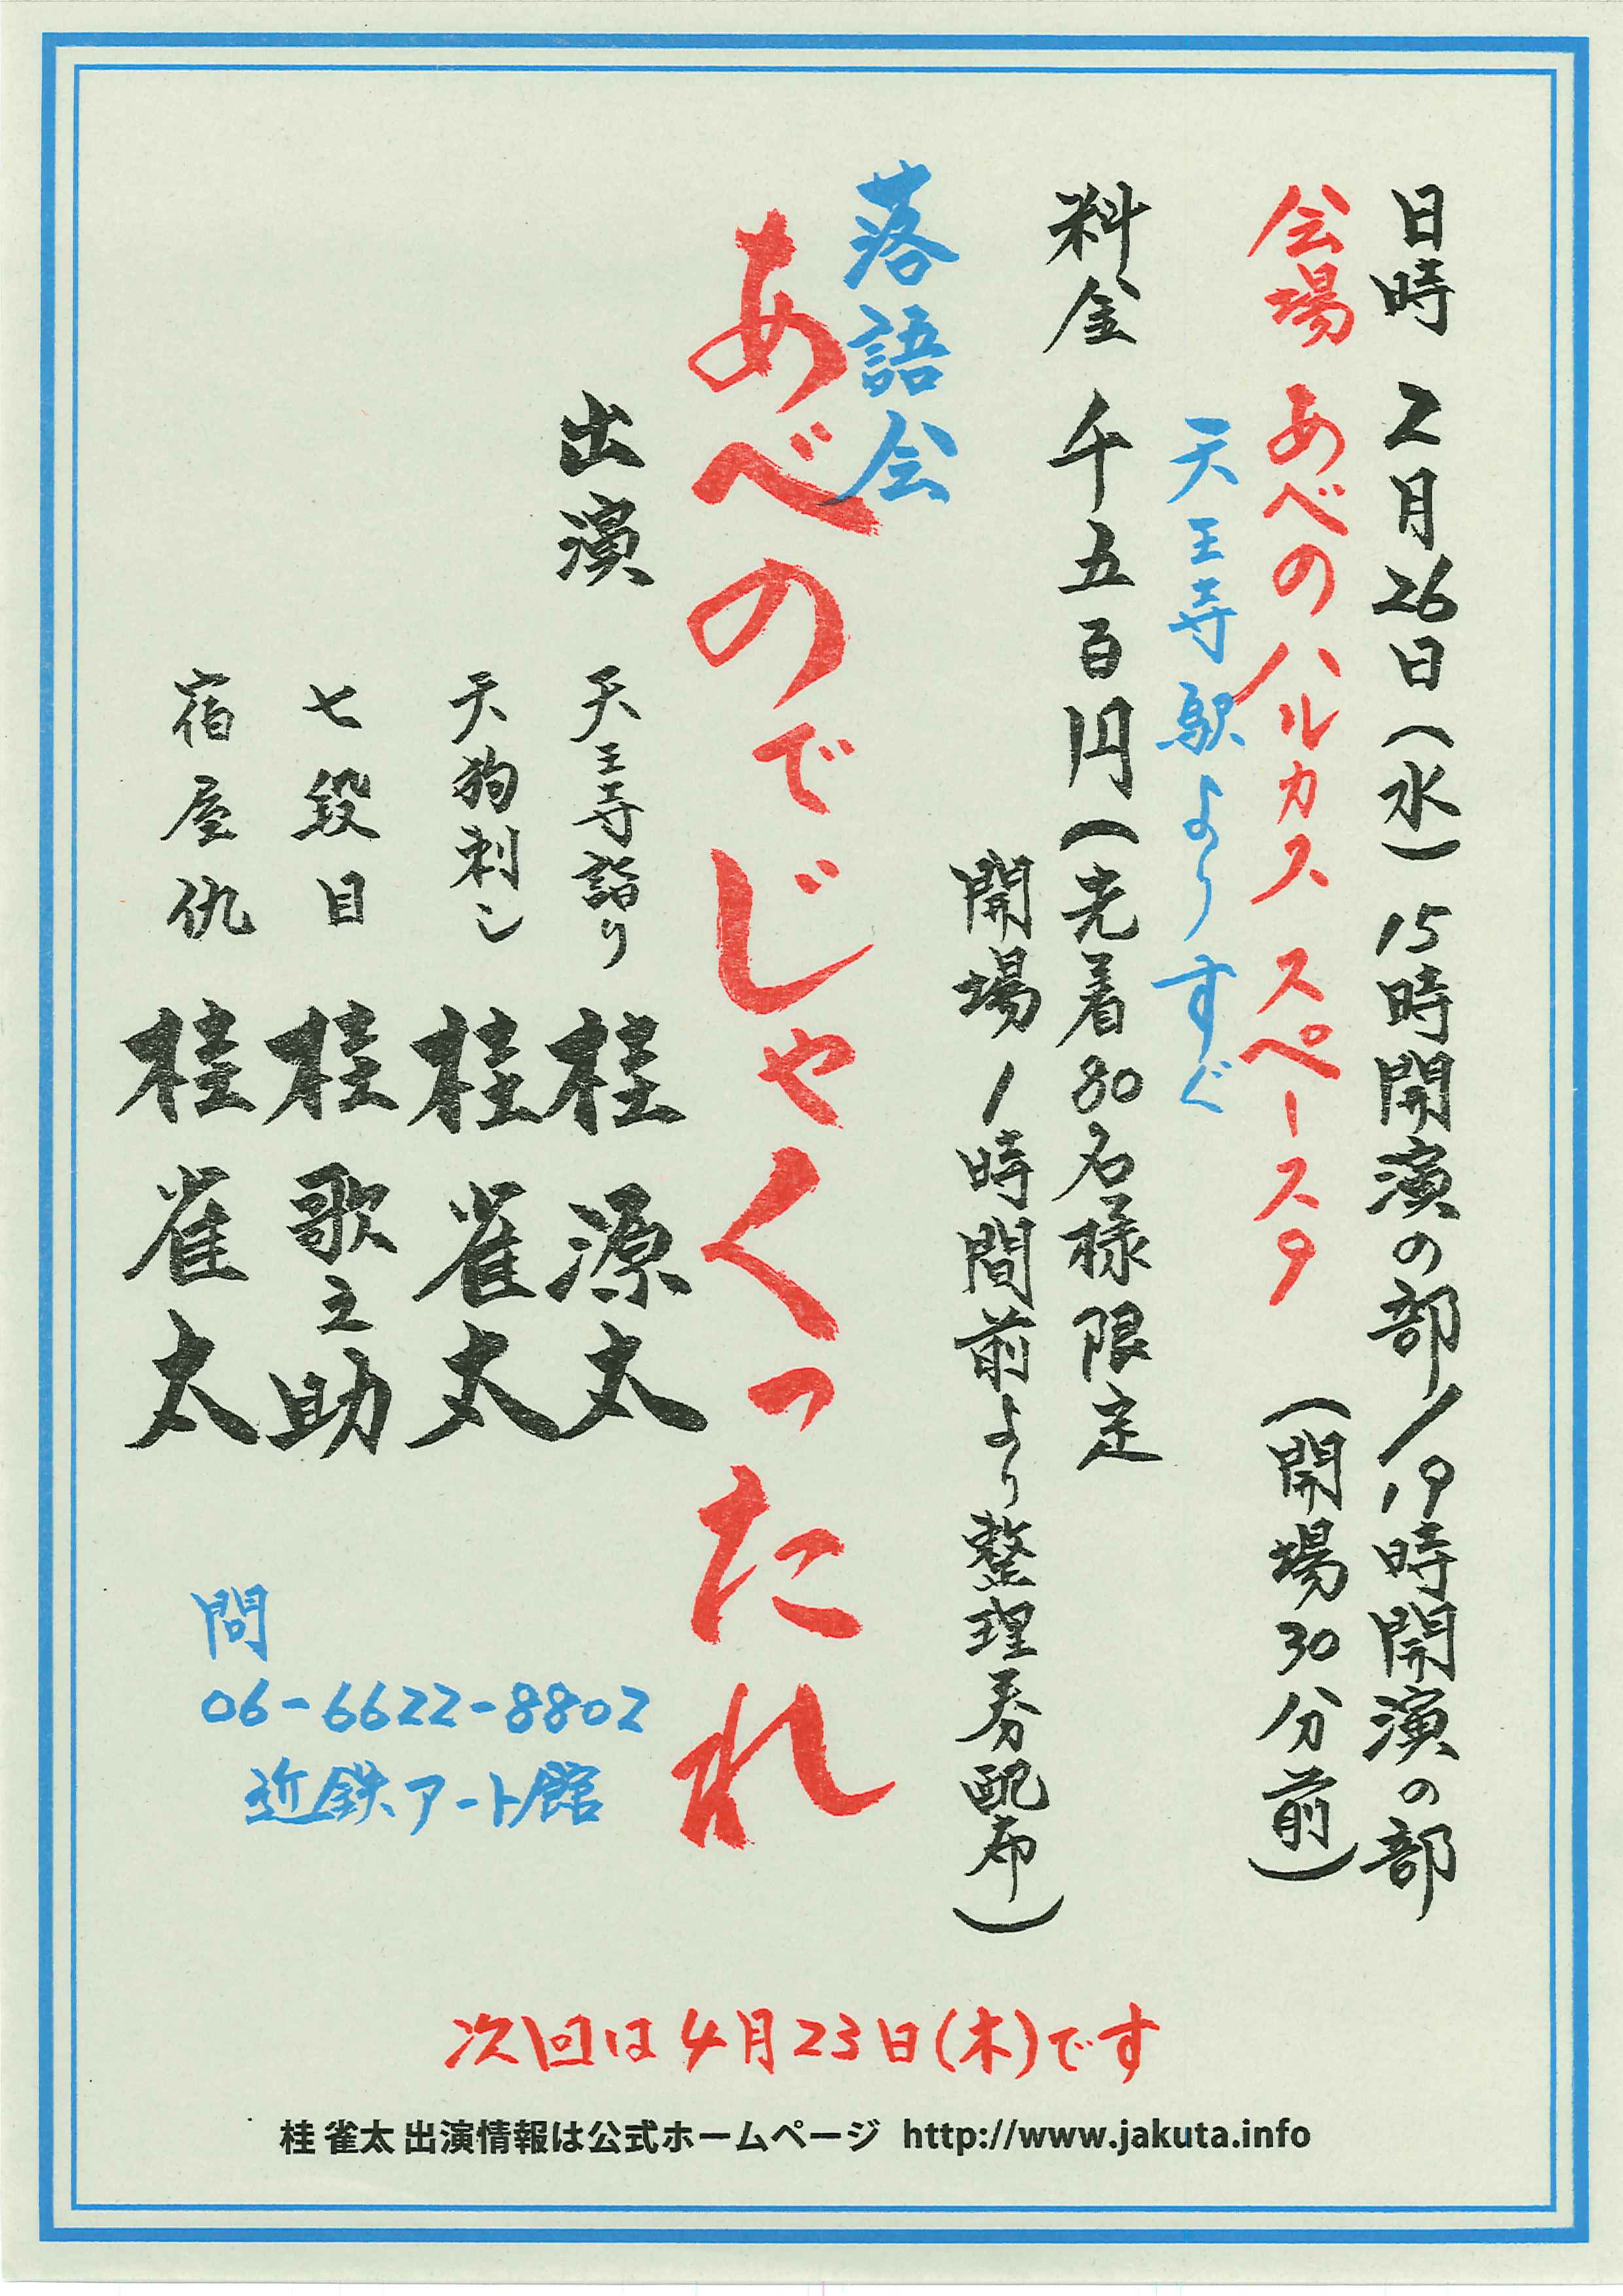 日時 2月26日(水) 15時開演の部/19時開演の部
会場 あべのハルカス スペース9 (開場30分前)
天王寺駅よりすぐ
料金 千五百円(先着80名様限定
開場1時間前より整理券配布)
落語会
あべのでじゃくったれ
出演
天王寺詣り 桂源太
天狗刺シ 桂雀太
七段目 桂歌之助
宿屋仇 桂雀太
問
06-6622-8802
近鉄アート館
次回は4月23日(木)です
桂 雀太 出演情報は公式ホームページ http://www.jakuta.info